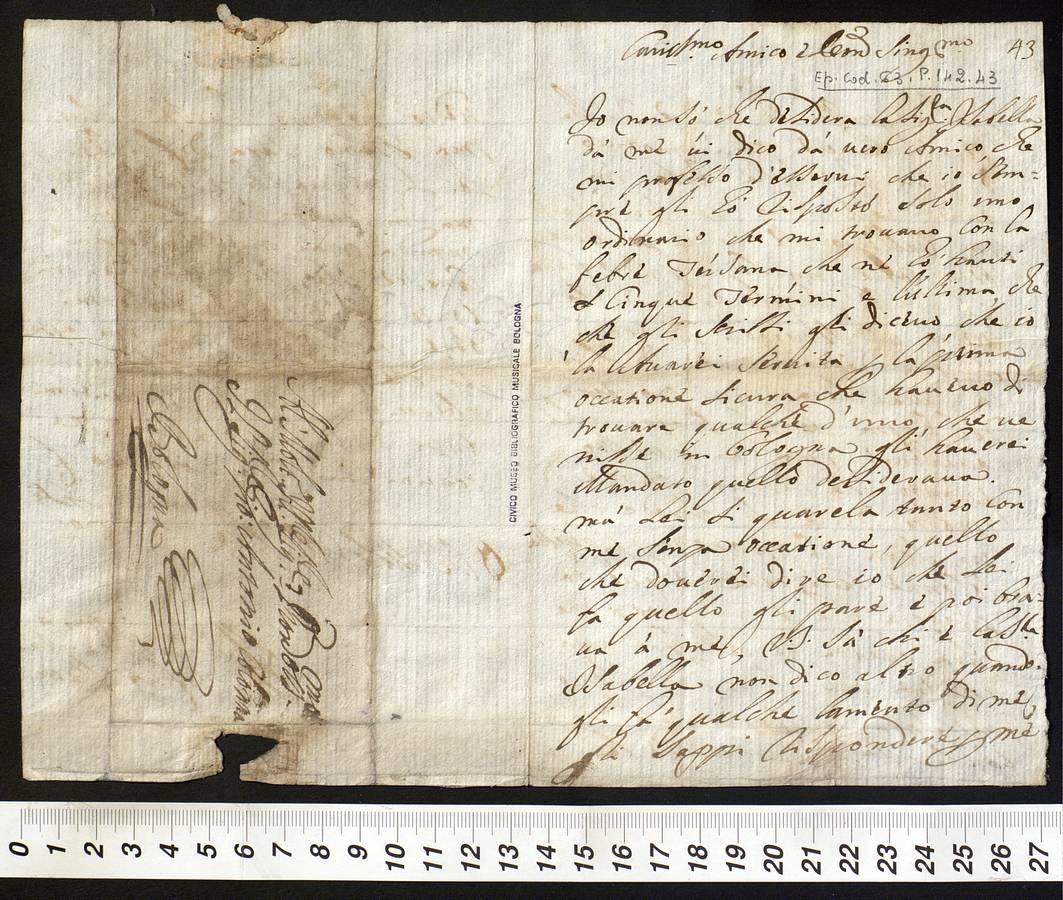 43
Ep. Cod. 23. P. 142. 43
Io non só che desidera la Sig.ra Isabella
dá me ui dico dá uero Amico che
mi professo d'esserui che io Sem=
pre gli hó risposto solo uno
ordinario che mi trouauo con la
febre Tersana che ne hó hauti
Cinque Termini e l'ultima che
che gli scrissi gli diceuo che io
la seruita p la prima
occatione sicura che haueuo di
trouare qualche d'uno che ue
nisse in Bologna gli hauerei
Mandato quello desideraua.
má Lei si quarela tanto con
me senza occatione, quello
che douerei dire io che Lei
fa quello gli pare e poi bra=
ua á me, V.S. sá chi é la Sig.ra
Isabella non dico altro quando
gli fá qualche lamento di me,
gli sappi rispondere p me
CIVICO MUSEO BIBLIOGRAFICO MUSICALE BOLOGNA
Antonio
Bologna
0 1 2 3 4 5 6 7 8 9 10 11 12 13 14 15 16 17 18 19 20 21 22 23 24 25 26 27